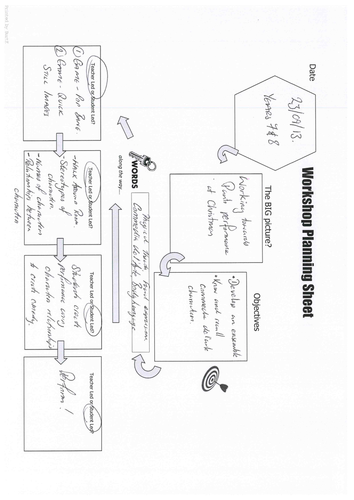 Workshop Planning Sheet
Date
23/09/13.
Years 7 & 8
The BIG picture?
Working towards
Panto performance
at Christmas
Objectives
• Develop an ensemble
• Know and recall
commedia del arte
characters.
KEY
WORDS
along the way....
Physical Theatre
Commedia del Arte, body language
Teacher Led or Student Led?
① Game - Pop Bang
② Game - Quick
Still Images
Teacher Led or Student Led?
- Walk Around Room
Stereotypes of
characters.
- Names of characters
- Relationships between
characters
Teacher Led or Student Led?
Students create
performance using
character relationships
to create comedy.
Teacher Led or Student Led?
Perform!